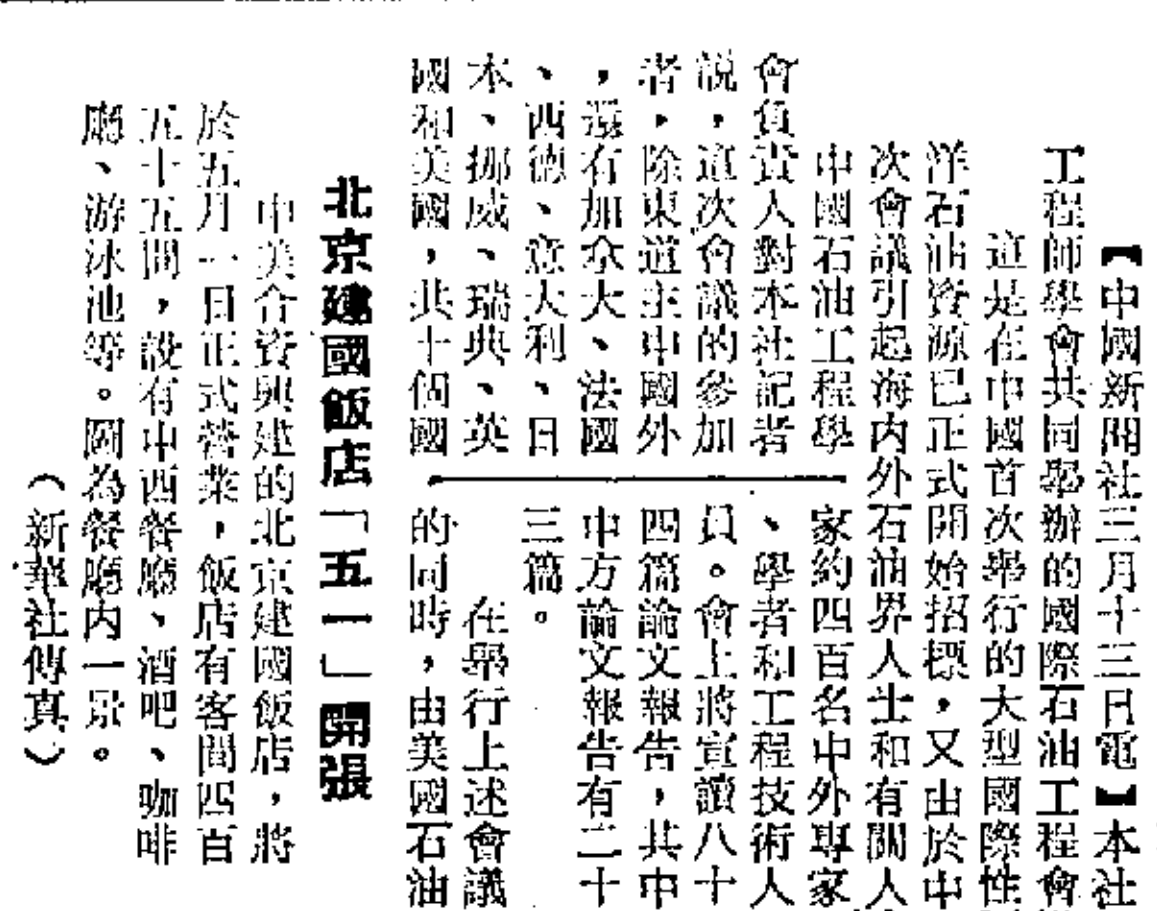 【中國新聞社三月十三日電】本社
工程師學會共同舉辦的國際石油工程會
這是在中國首次舉行的大型國際性
洋石油資源已正式開始招標,又由於中
次會議引起海內外石油界人士和有關人
中國石油工程學
會負責人對本社記者
説,這次會議的參加
者,除東道主中國外
,還有加拿大、法國
、西德、意大利、日
本、挪威、瑞典、英
國和美國,共十個國
家約四百名中外專家
、學者和工程技術人
員。會上將宣讀八十
四篇論文報告,共中
中方論文報告有二十
三篇。
在舉行上述會議
的同時,由美國石油
北京建國飯店「五一」開張
中美合資興建的北京建國飯店,將
於五月一日正式營業,飯店有客間四百
五十五間,設有中西餐廳、酒吧、咖啡
廳、游泳池等。圖為餐廳內一景。
(新華社傳真)